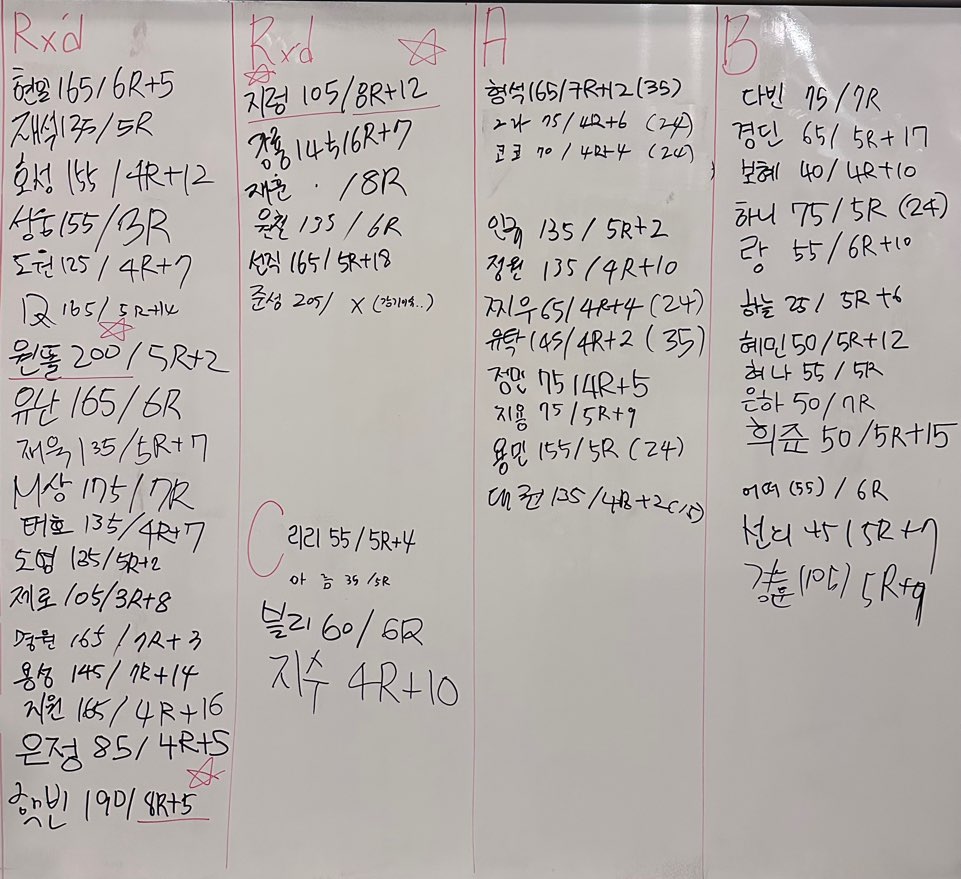 Rxd
현밀 165/6R+5
재석 135/5R
호성 155/4R+12
상웅 155/3R
도현 125/4R+7
165/5R+14
원똘 200/5R+2
유난 165/6R
재욱 135/5R+7
M상 175/7R
태호 135/4R+7
도영 125/5R+2
제로 105/3R+8
명원 165/7R+3
용성 145/7R+14
지원 165/4R+16
은정 85/4R+5
햇빈 190/8R+5
Rxd
지렁 105/8R+12
강홍 145/6R+7
재훈 . /8R
윤철 135/6R
선직 165/5R+18
준성 205/ X
C
리리 55/5R+4
아름 35/5R
블리 60/6R
지수 4R+10
A
형석 165/7R+12 (35)
75/4R+6 (24)
코코 70/4R+4 (24)
인규 135/5R+2
정원 135/4R+10
찌우 65/4R+4 (24)
유탁 145/4R+2 (35)
정민 75/4R+5
지용 75/5R+9
용민 155/5R (24)
대권 135/4R+2
B
다빈 75/7R
경단 65/5R+17
보혜 40/4R+10
하니 75/5R (24)
랑 55/6R+10
하늘 25/5R+6
혜민 50/5R+12
허나 55/5R
은하 50/7R
희준 50/5R+15
(55)/6R
선더 45/5R+7
경훈 (105) 5R+9